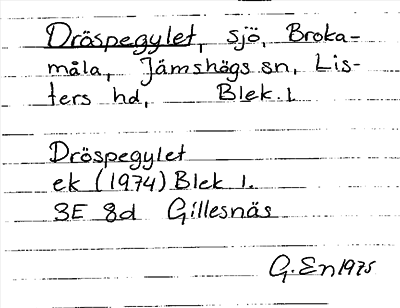 Dröspegylet, sjö, Broka-
måla, Jämshögs sn, Lis-
ters hd, Blek. l
Dröspegylet
ek (1974) Blek l.
3E 8d Gillesnäs
G. En 1975